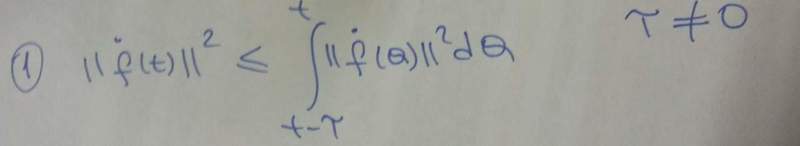 ① ||ḟ(t)||² ≤ ∫_{t-τ}^{t} ||ḟ(θ)||² dθ τ ≠ 0